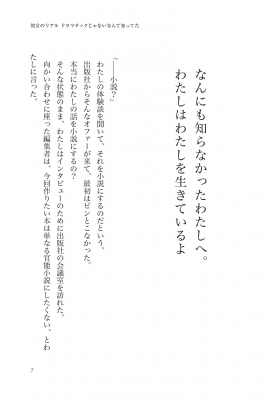 彼女のリアル ドラマチックじゃないなんて知ってた
なんにも知らなかったわたしへ。
わたしはわたしを生きているよ
「――小説？」
わたしの体験談を聞いて、それを小説にするのだという。
出版社からそんなオファーが来て、最初はピンとこなかった。
本当にわたしの話を小説にするの？
そんな状態のまま、わたしはインタビューのために出版社の会議室を訪れた。
向かい合わせに座った編集者は、今回作りたい本は単なる官能小説にしたくない、とわ
たしに言った。
7